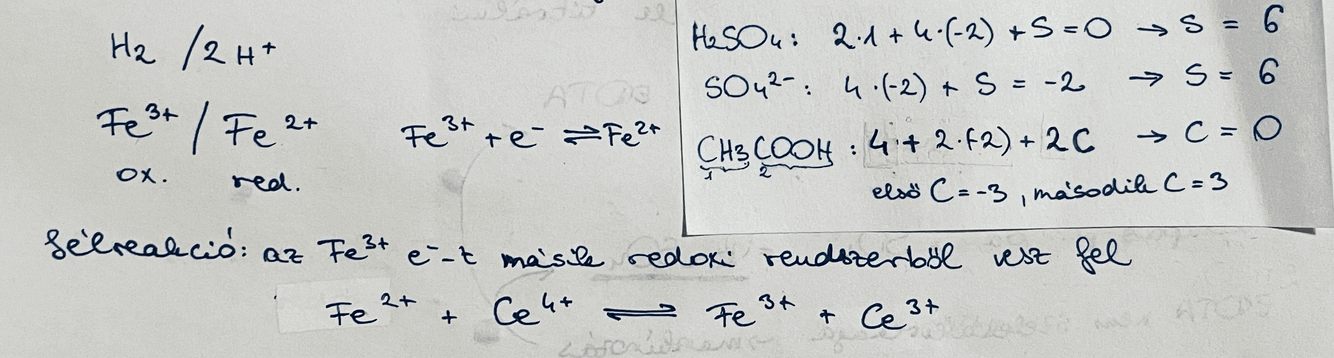 H₂ / 2 H⁺
Fe³⁺ / Fe²⁺ Fe³⁺ + e⁻ ⇌ Fe²⁺
ox. red.
H₂SO₄: 2·1 + 4·(-2) + S = 0 → S = 6
SO₄²⁻: 4·(-2) + S = -2 → S = 6
CH₃COOH: 4 + 2·(-2) + 2C → C = 0
1 2
első C = -3, második C = 3
félreakció: az Fe³⁺ e⁻-t másik redoxi rendszerből vesz fel
Fe²⁺ + Ce⁴⁺ ⇌ Fe³⁺ + Ce³⁺